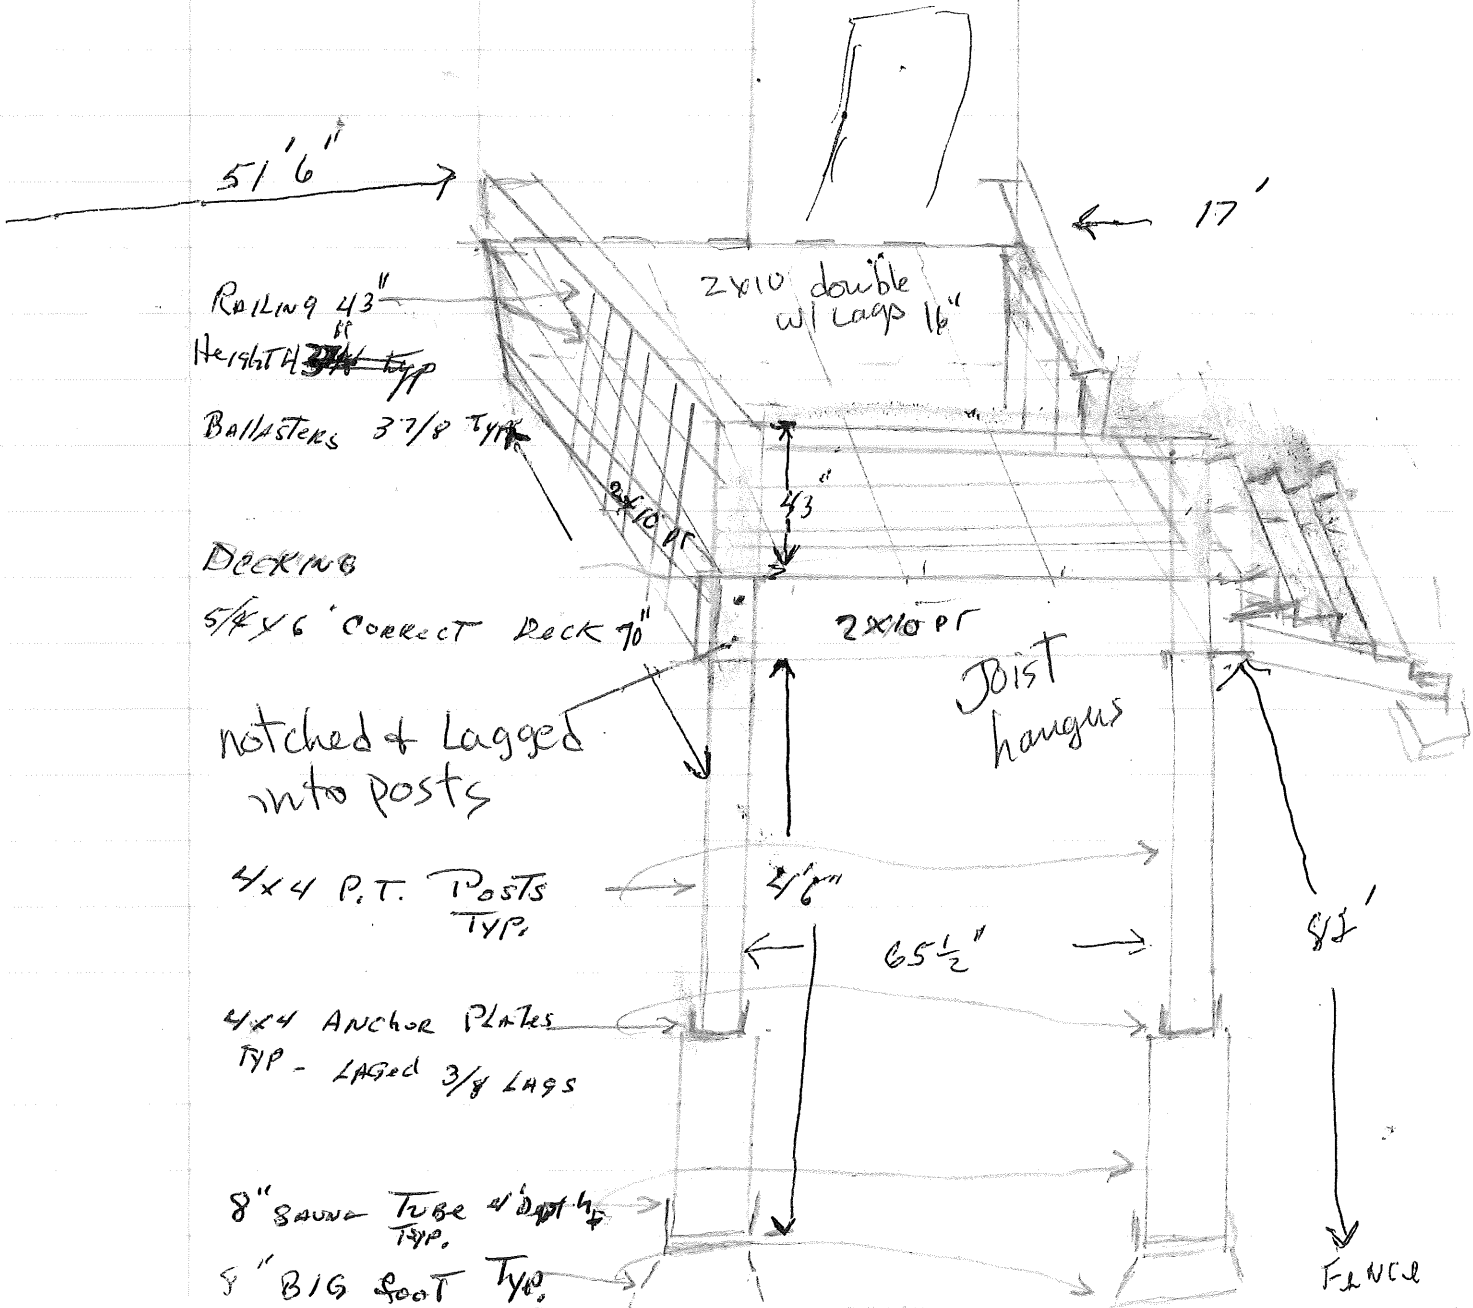 51'6"
17'
2x10 double
w/ Lags 16"
RAILING 43"
HeighT
BALLASTERS 3 7/8 TYP
43"
2x10 PT
DECKING
5/4 x 6 CORRECT DECK 70"
2x10 PT
JOIST
hangers
notched & Lagged
into posts
4x4 P.T. POSTS
TYP.
4'6"
65 1/2"
4x4 ANCHOR PLATES
TYP - LAGed 3/8 LAGS
8" SAUNA TUBE 4' Depth
TYP.
8" BIG FOOT TYP.
FENCE